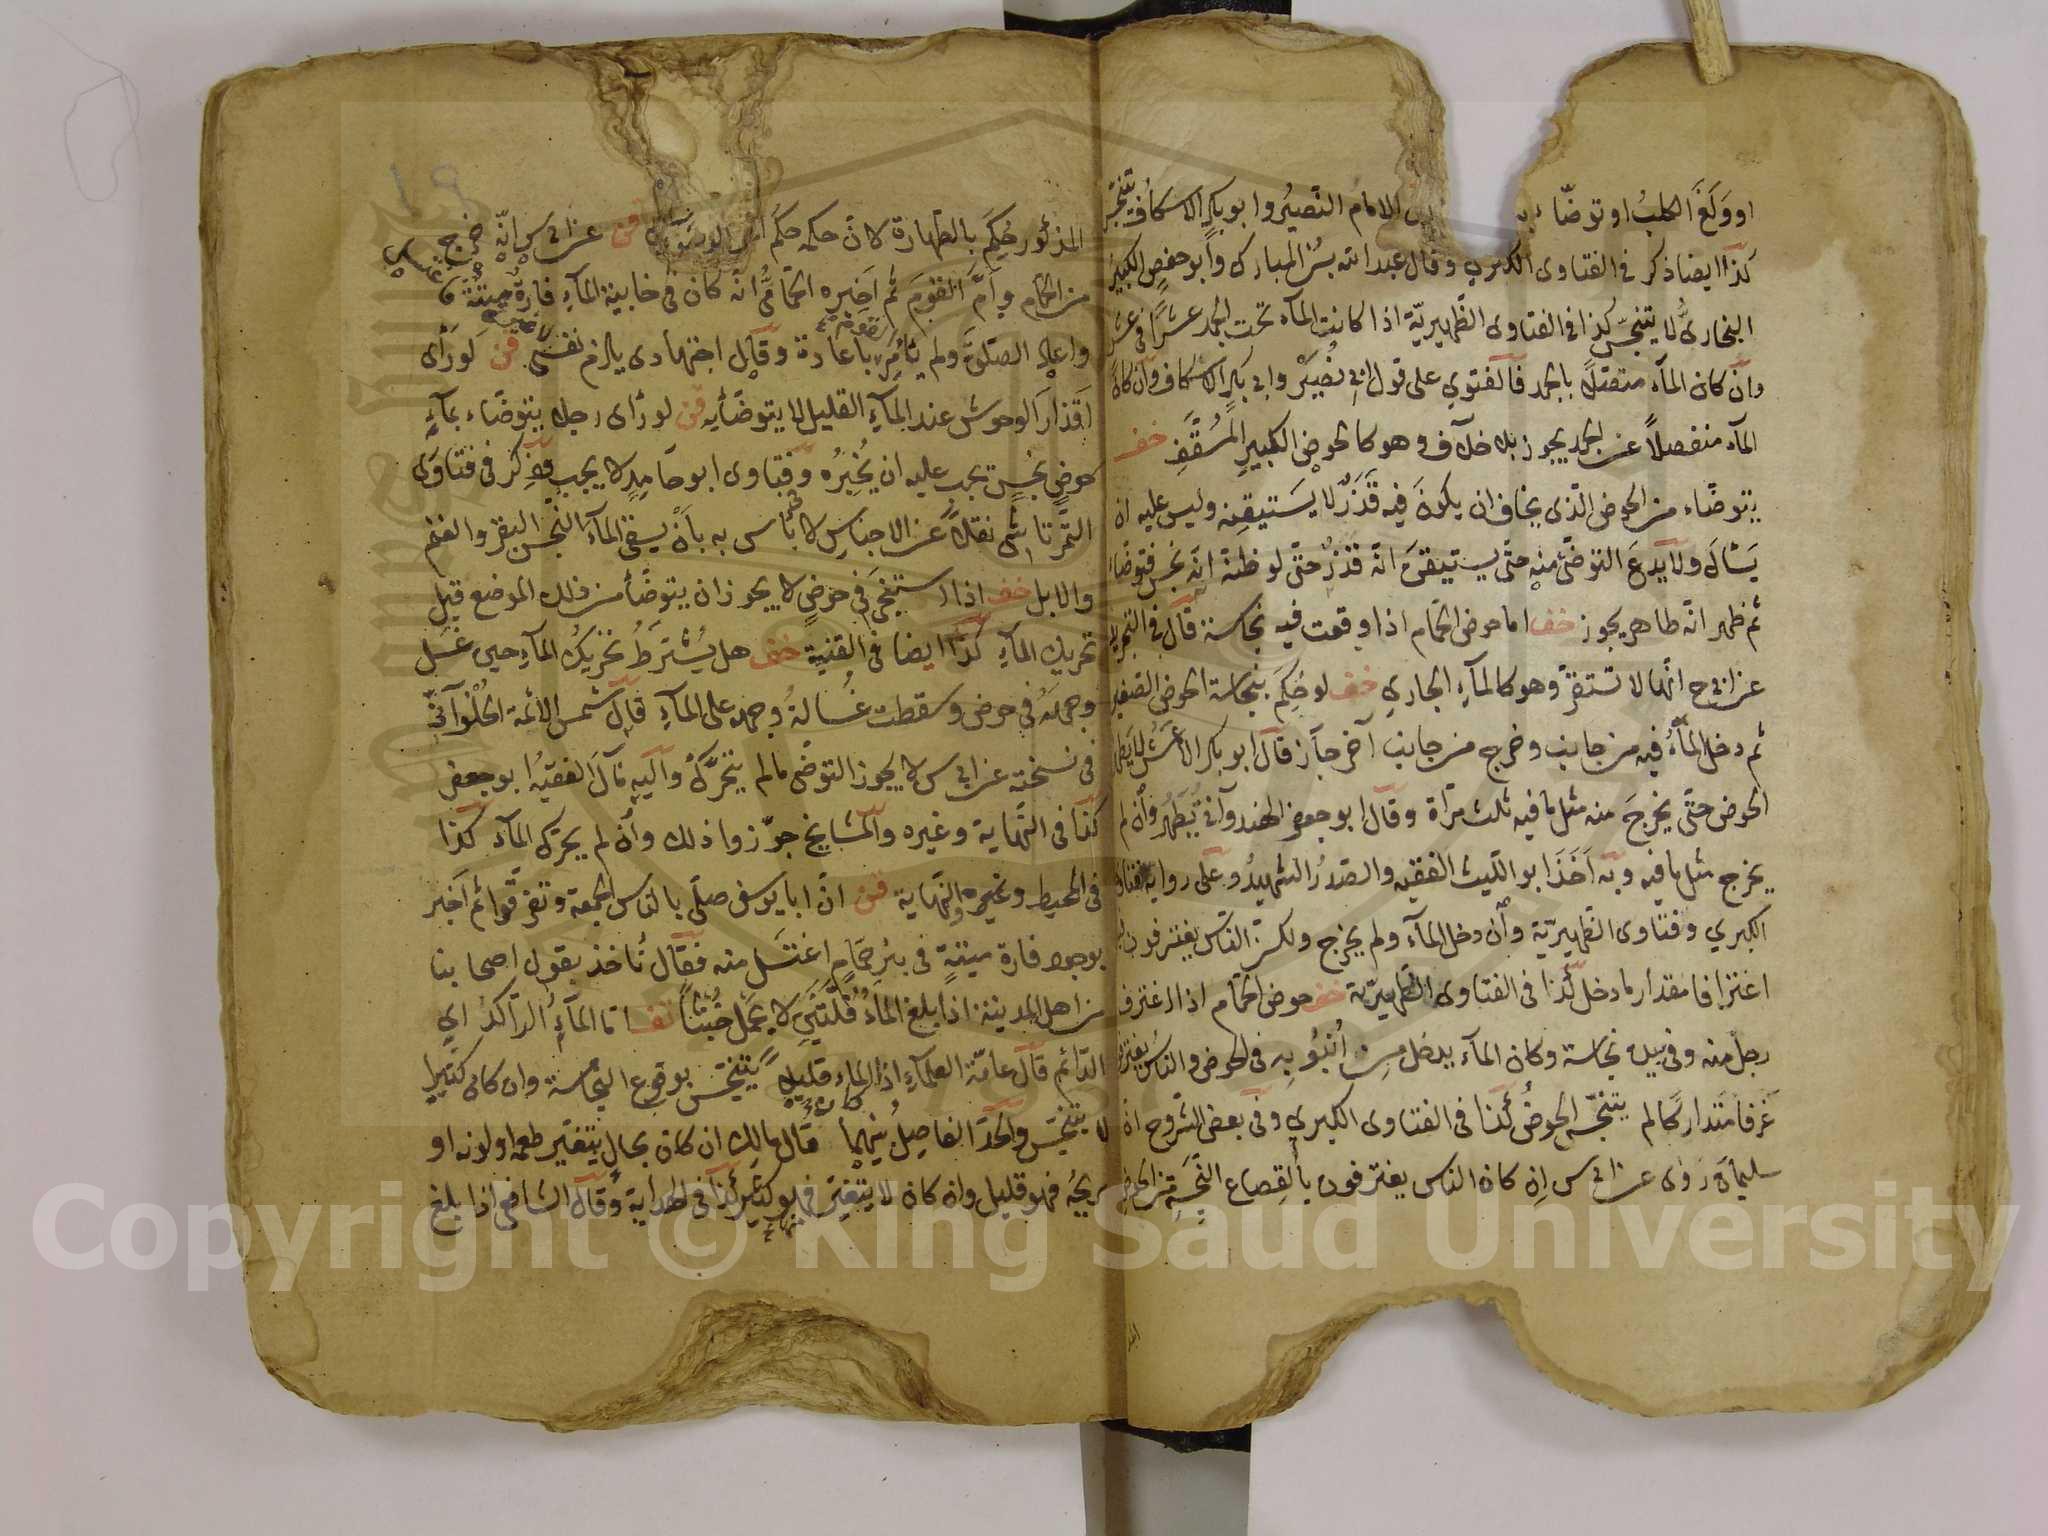 او ولغ الكلب او توضّا به الامام النّصير وابو بكر الاسكاف تنجّس
كذا ايضا ذكر فى الفتاوى الكبرى وقال عبد الله بن المبارك وابو حفص الكبير
البخارىّ لا يتنجّس كذا فى الفتاوى الظّهيريّة اذا كانت الماء تحت الجمد عشرًا فى عشر
وانّ كان الماء متصلاً بالجمد فالفتوى على قول ابى نُصير وابى بكر الاسكاف وان كان
الماء منفصلاً عن الجمد يجوز بلا خلاف وهو كالحوض الكبير المُسَقَّف خف
يتوضّاء من الحوض الّذى يخاف ان يكون فيه قَذَرٌ لا يستيقنه وليس عليه ان
يَسْالَ ولا يدع التوضّئ منه حتّى يستيقن انّه قذرٌ حتّى لو ظنّه انّه نجس فتوضّاء
ثم ظهر انّه طاهر يجوز خف اما حوض الحمّام اذا وقعت فيه نجاسة قال فى التجريد
عن ابى ح انّها لا تستقرّ وهو كالماء الجارى خف لو حُكِمَ بنجاسة الحوض الصغير
ثم دخل الماءُ فيه من جانب وخرج من جانب آخر جاز قال ابو بكر الاعمش لا يطهر
الحوض حتّى يخرج منه مثل ما فيه ثلث مرّاة وقال ابو جعفر الهندوآنى يَطْهُر وان لم
يخرج مثل ما فيه وبه اَخَذَ ابو اللّيث الفقيه والصّدرُ الشّهيدُ وعلى رواية فتاوى
الكبرى وفتاوى الظّهيريّة وان دخل الماء ولم يخرج ولكن النّاس يغترفون
اغترافا مقدار ما دخل كذا فى الفتاوى الظّهيريّة خف حوض الحمّام اذا اغترف
رجل منه وفى يده نجاسة وكان الماء يدخل من اُنبُوبِه فى الحوض والناس يغترفون
غَرفا متداركا لم يتنجّس الحوضُ كذا فى الفتاوى الكبرى وفى بعض الشّروح انّ
سليمان روى عن ابى س ان كان الناس يغترفون بالقِصاع النَّجِسَة من الحوض
المذكور حُكِمَ بالطّهارة لانّ حكمه حكم قن عن ابى س انّه خرج
من الحمّام وامَّ القومَ ثم اخبره الحمّامىُّ انّه كان فى خابية الماء فارةٌ ميتةٌ فاغتسل
واعاد الصّلوة ولم يأمر القوم باعادة وقال اجتهادى يلزم نفسى لا غيرى قن لو رأى
اَقذارَ الوحوش عند الماءِ القليل لا يتوضّأ به قن لو رأى رجلا يتوضّاء بماءٍ
حوضٍ نجسٍ يجب عليه ان يُخبِرُه وفتاوى ابو حامد لا يجب وذكر فى فتاوى
التّمرتاشى نقلاً عن الاجناس لا بأس به بأن يسقى الماءَ النّجسَ البقرَ والغنمَ
والابل خف اذا استنجى فى حوضٍ لا يجوز ان يتوضّأ من ذلك الموضع قبل
تحريك الماءِ كذا ايضا فى القنية خف هل يُشْترَطُ تحريكُ الماءِ حين غسل
وجهه فى حوض وسقطت غُسالةُ وجهه على الماءِ قال شمس الائمّة الحُلوآنىّ
فى نسخته عن ابى س لا يجوز التوضّى ما لم يتحرّكْ واليه مال الفقيهُ ابو جعفر
كذا فى النّهاية وغيره والمشايخ جوّزوا ذلك وان لم يحرّك الماء كذا
فى المحيط وغيره والنّهاية قن انّ ابا يوسف صلّى بالناس الجمعة وتفرّقوا ثم اُخبر
بوجود فارة ميتة فى بئر حمّام اغتسل منه فقال نُاخذ بقول اصحابنا
من اهل المدينة اذا بلغ الماءُ قُلَّتَينِ لا يحمل خُبثًا تف اما الماءِ الرّاكدُ اى
الدّائم قال عامّة العلماء اذا الماء كان قليلا يتنجّس بوقوع النّجاسة وان كان كثيرا
لا يتنجّس والحدّ الفاصل بينهما قال مالك ان كان بحالٍ يتغيّر طعمه او لونه او
ريحُه فهو قليل وان كان لا يتغيّر فهو كثير كذا فى الهداية وقال الشافعى اذا بلغ
Copyright © King Saud University